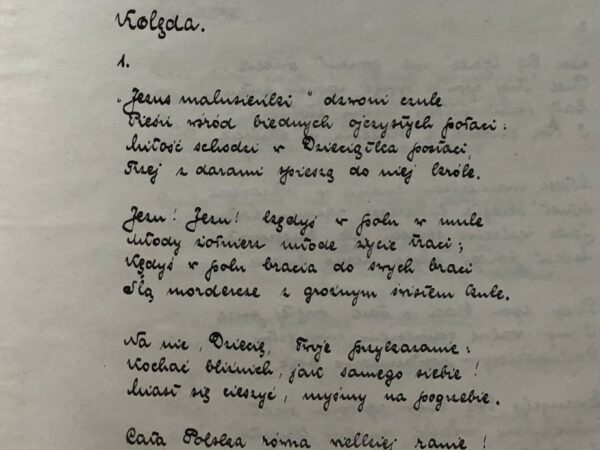 Kolęda.
1.
„Jezus malusieńki" dzwoni czule
Pieśń wśród biednych ojczystych połaci:
Miłość schodzi w Dzieciątka postaci,
Trzej z darami spieszą do niej króle.
Jezu! Jezu! kędyś w polu w mule
Młody żołnierz młode życie traci;
Kędyś w polu bracia do swych braci
Ślą mordercze z groźnym świstem kule.
Na nic, Dziecię, Twoje przykazanie:
Kochać bliźnich, jak samego siebie!
Miast się cieszyć, myśmy na pogrzebie.
Cała Polska równa wielkiej ranie!